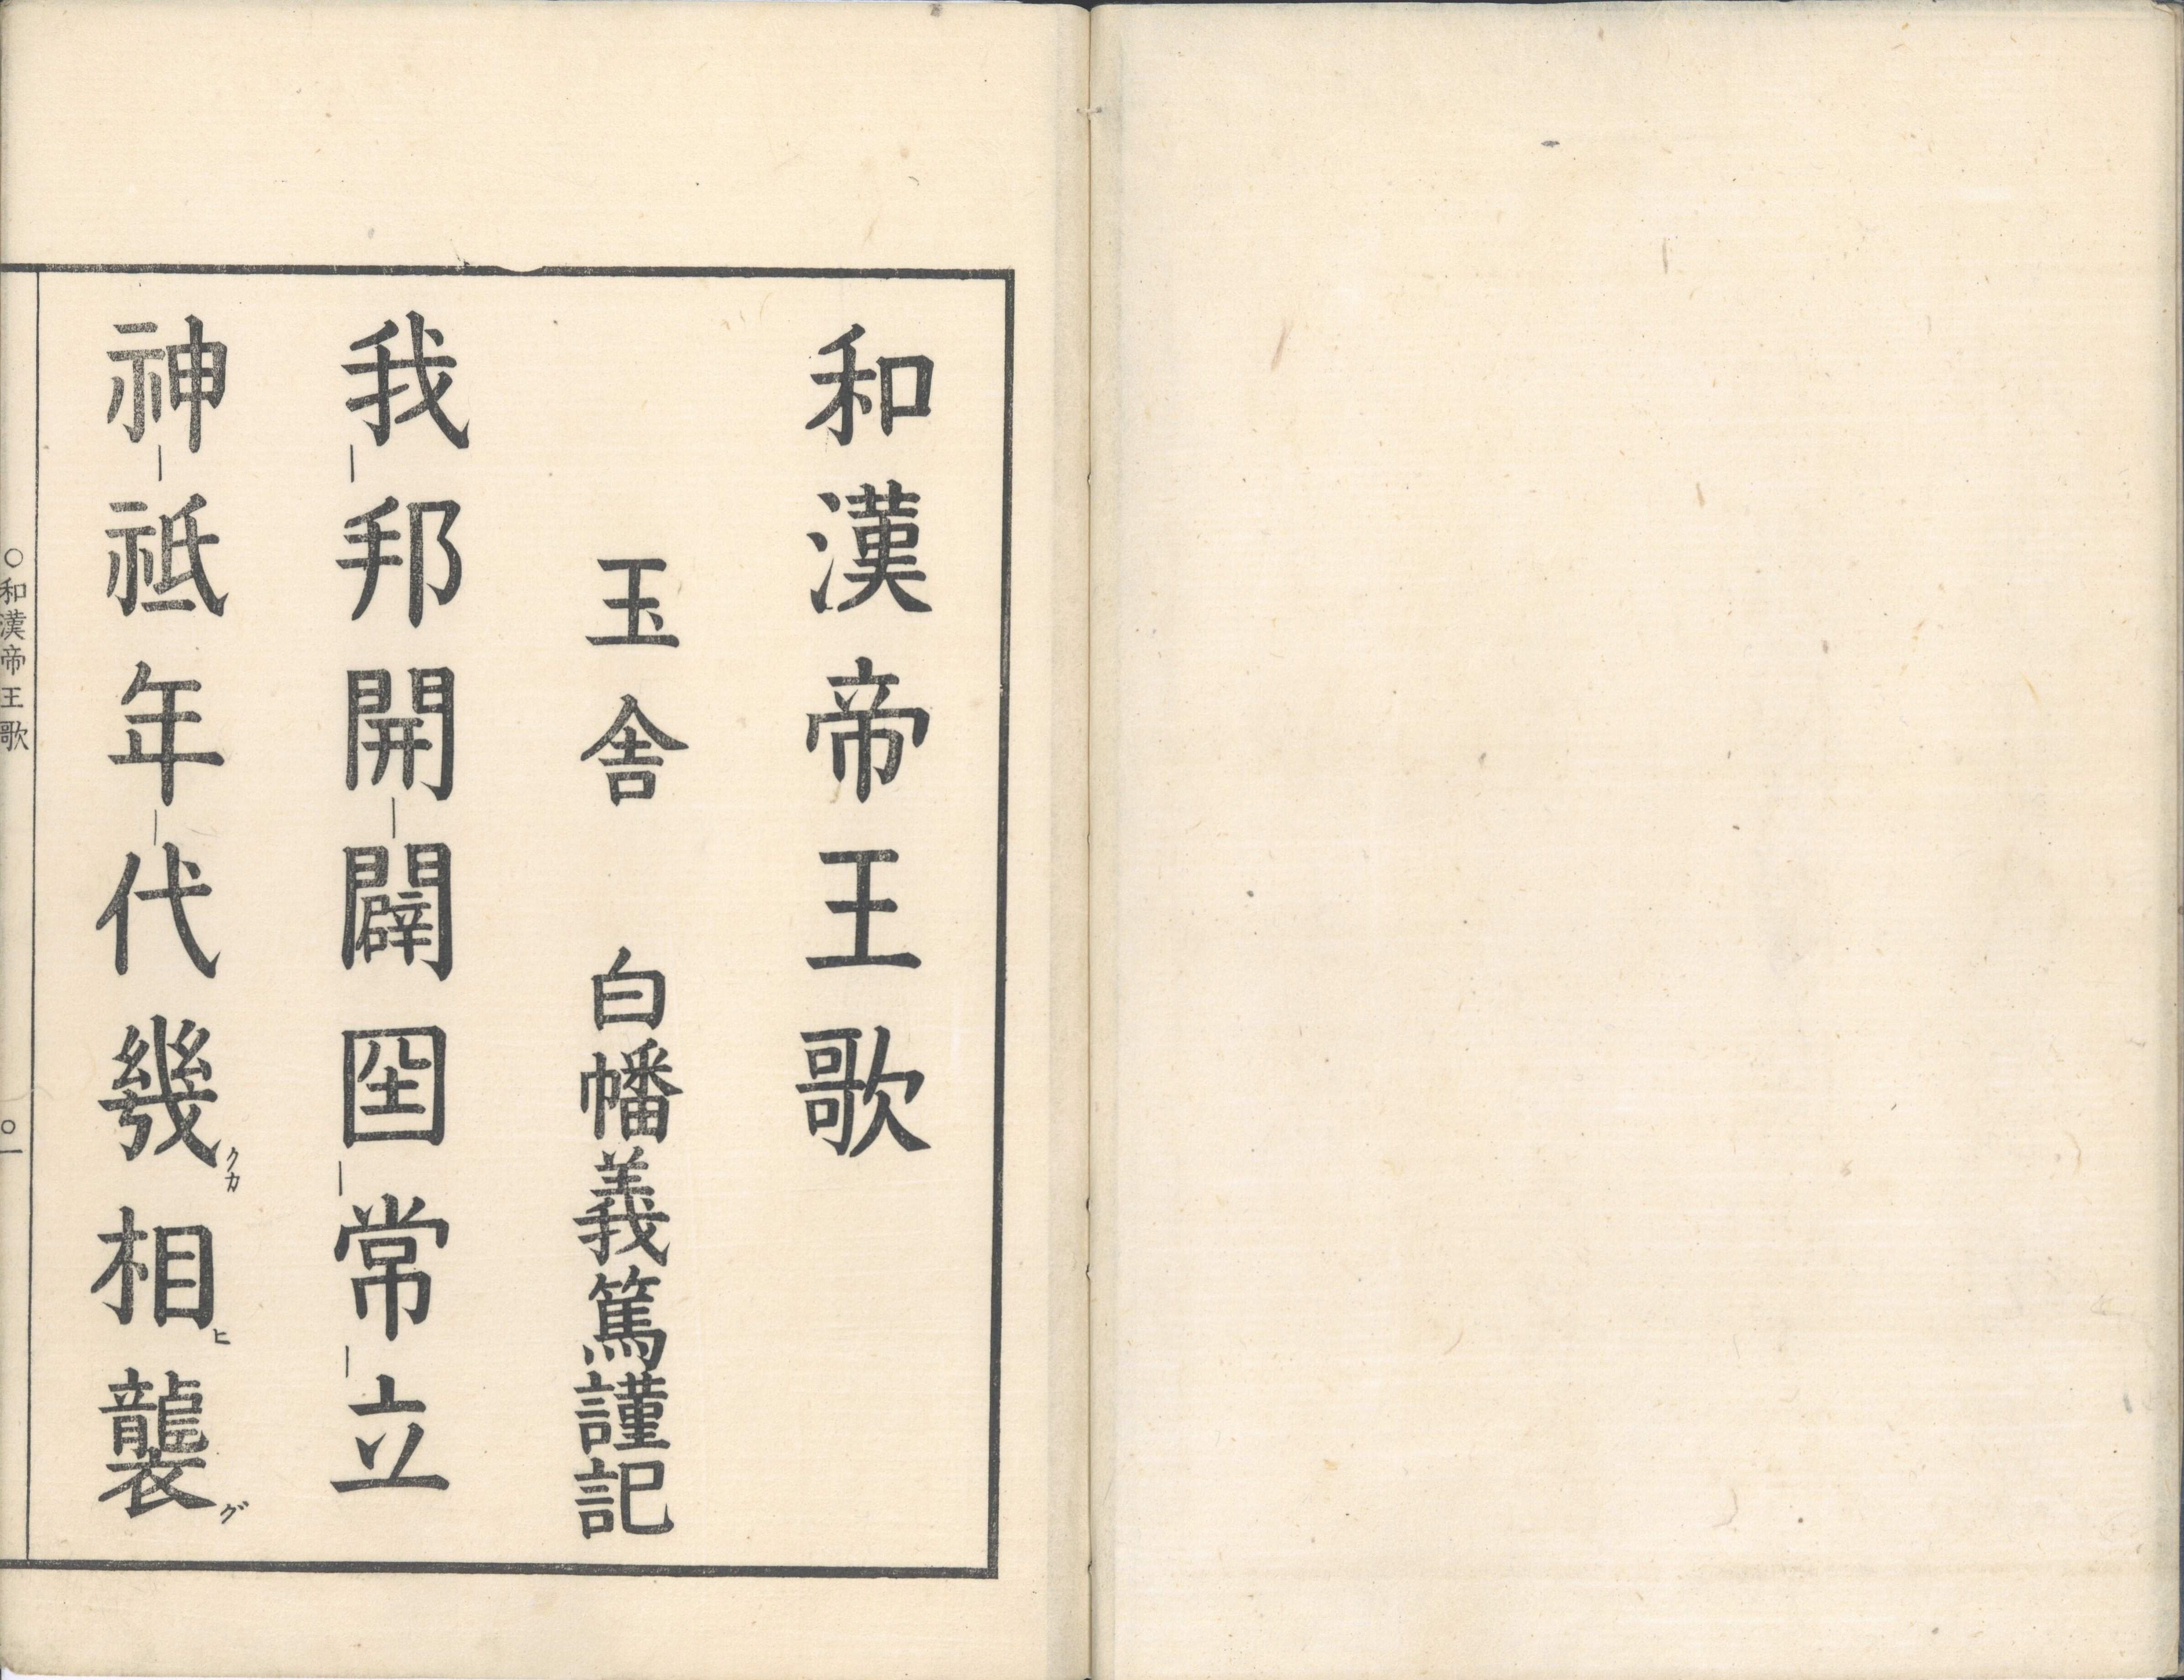 和漢帝王歌
玉舎 白幡義篤謹記
我邦開闢囶常立
神祇年代幾クカ相ヒ襲グ
○和漢帝王歌 ○一